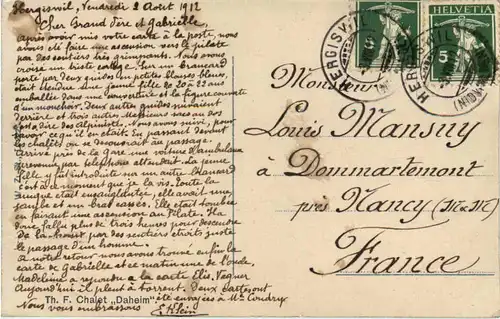 Hergiswil, Vendredi 2 Aout 1912
Cher Grand Père et Gabrielle,
après avoir mis votre carte à la poste, nous
avons été faire une ascension vers le pilate
par des sentiers très grimpants. Nous avons
croisé un triste cortège. Sur un brancard
porté par deux guides en petites blouses bleues,
était étendue une jeune fille de 20 à 22 ans
emballée dans une couverture et la figure couverte
d'un mouchoir. Deux autres guides suivaient
derrière et trois autres Messieurs avec au dos
des Alpinistes. Nous avons suivi, pour
savoir ce qu'il en était. En passant devant
les chalets on se découvrait au passage.
Arrivés près de la gare une voiture d'ambulance
prévenue par téléphone attendait. La jeune
fille y fut introduite sur un autre brancard
c'est à ce moment que je la vis. Toute la
était ensanglantée, elle avait une
jambe et un bras cassés. Elle était tombée
en faisant une ascension au Pilate. Il a
fallu plus de trois heures pour descendre
par des sentiers étroits juste
le passage d'un homme.
A notre retour nous avons trouvé enfin la
carte de Gabrielle et ce matin une de l'oncle.
Madeleine a répondu à la carte Elis. Vegner
Aujourd'hui il pleut à torrent. Deux cartes ont
été envoyées à Mme Coudry
Nous vous embrassons E. Klein
Th. F. Chalet „Daheim"
HELVETIA
5
5
HERGISWIL
HERGISWIL
Monsieur
Louis Mansuy
à Dommartemont
près Nancy (M et M)
France